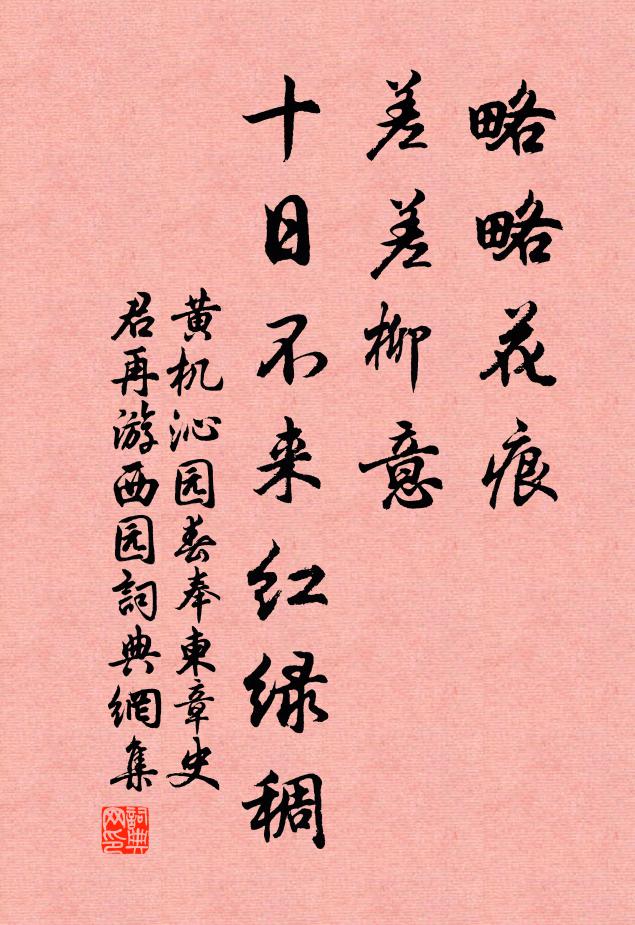 略略花痕
差差柳意
十日不来红绿稠
黄机沁园春奉东章史
君再游西园詞典網集
詞典
网印